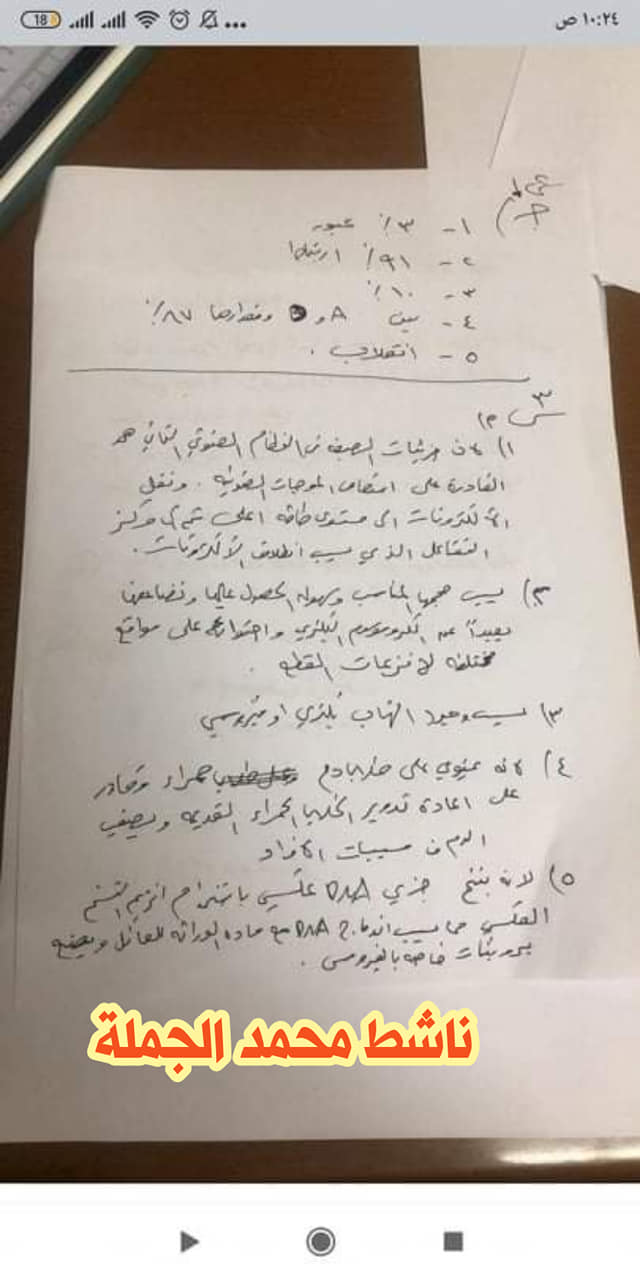 ١٠:٢٤ ص
18
١- ٣٪ عبور
٢- ٩١٪ ارتباط
٣- ١٠٪
٤- بين A و ومقدارها ٨٧٪
٥- انقلاب .
س٣
١) لان جزيئات الصبغة في النظام الضوئي الثاني هي
القادرة على امتصاص الموجات الضوئية . ونقل
الالكترونات الى مستوى طاقة اعلى ثم الى مركز
التفاعل الذي يسبب انطلاق الألكترونات .
٢) بسبب حجمها المناسب وسهولة الحصول عليها وتضاعفها
بعيداً عن الكروموسوم البكتيري واحتوائها على مواقع
مختلفة لانزيمات القطع .
٣) بسبب وجود التهاب بكتيري او فيروسي
٤) لانه يحتوي على خلايا دم حمراء وقادر
على اعادة تدوير الخلايا الحمراء القديمة ويصفي
الدم من مسببات
٥) لانه ينتج جزي DNA عكسي باستخدام انزيم النسخ
العكسي مما يسبب اندماج DNA مع مادة الوراثة للعائل ويصنع
بروتينات خاصة بالفيروس .
ناشط محمد الجملة